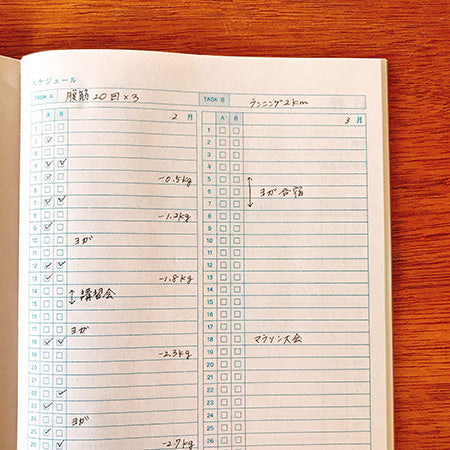 スケジュール
TASK A 腹筋 20回×3
A B 2月
1
2
3
4
5 -0.5kg
6
7
8 -1.2kg
9
10 ヨガ
11
12
13 -1.8kg
14 講習会
15
16
17 ヨガ
18
19 -2.3kg
20
21
22
23
24 ヨガ
25
26 -2.7kg
TASK B ランニング2km
A B 3月
1
2
3
4
5
6 ヨガ合宿
7
8
9
10
11
12
13
14
15
16
17
18 マラソン大会
19
20
21
22
23
24
25
26